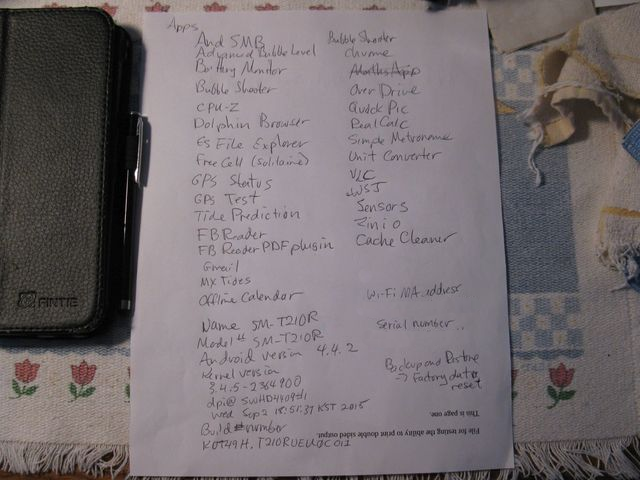 Apps
And SMB
Advanced Bubble Level
Battery Monitor
Bubble Shooter
CPU-Z
Dolphin Browser
Es File Explorer
Free Cell (Solitaire)
GPS Status
GPS Test
Tide Prediction
FB Reader
FB Reader PDF plugin
Gmail
MX Tides
Offline Calendar
Bubble Shooter
Chrome
Maths App
Over Drive
Quick Pic
Real Calc
Simple Metronome
Unit Converter
VLC
WSJ
Sensors
Zinio
Cache Cleaner
Wi-Fi MA. address
Serial number..
Name SM-T210R
Model # SM-T210R
Android version 4.4.2
Kernel version
3.4.5-2364900
dpi@
Wed Sep 2 18:51:37 KST 2015
Build # number
Backup and Restore
→ Factory data
reset
File for testing the ability to print double sided output.
This is page one.
ANTIE